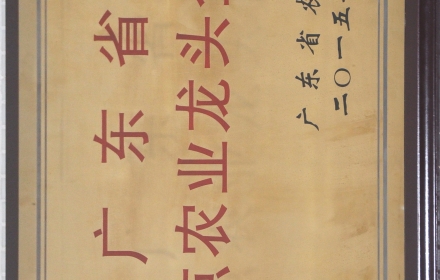 广东省
点农业龙头
广东省农
二〇一五